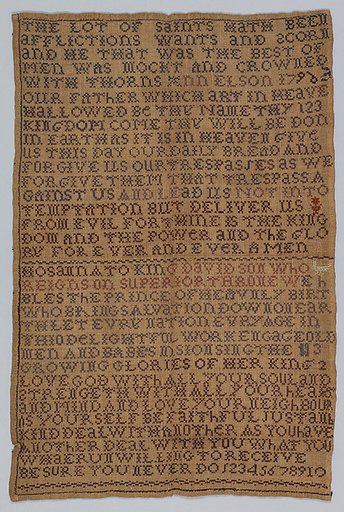 THE LOT OF SAINTS HATH BEEN
AFFLICTIONS WANTS AND SCORN
AND HE THAT WAS THE BEST OF
MEN WAS MOCKT AND CROWNED
WITH THORNS ANN ELSON 17
OUR FATHER WHICH ART IN HEAVE
HALLOWED BE THY NAME THY 123
KINGDOM COME THY WILL BE DON
IN EARTH AS IT IS IN HEAVEN GIVE
US THIS DAY OUR DAILY BREAD AND
FORGIVE US OUR TRESPASSES AS WE
FORGIVE THEM THAT TRESPASS A
GAINST US AND LEAD US NOT INTO
TEMPTATION BUT DELIVER US
FROM EVIL FOR THINE IS THE KING
DOM AND THE POWER AND THE GLO
RY FOR EVER AND EVER AMEN
HOSANNA TO KING DAVID SON WHO
REIGNS ON SUPERIOR THRONE WE
BLES THE PRINCE OF HEAVNLY BIRTH
WHO BRINGS SALVATION DOWN ON EAR
TH LET EVRY NATION EVRY AGE IN
THIS DELIGHTFUL WORK ENGAGE OLD
MEN AND BABES IN SION SING THE
GROWING GLORIES OF HER KING 2
LOVE GOD WITH ALL YOUR SOUL AND
STRENGTH WITH ALL YOUR HEART
AND MIND AND LOVE YOUR NEIGHBOUR
AS YOUR SELF BE FAITHFUL JUST AND
KIND DEAL WITH ANOTHER AS YOU HAVE
ANOTHER DEAL WITH YOU WHAT YOU
ARE UNWILLING TO RECEIVE
BE SURE YOU NEVER DO 12345678910